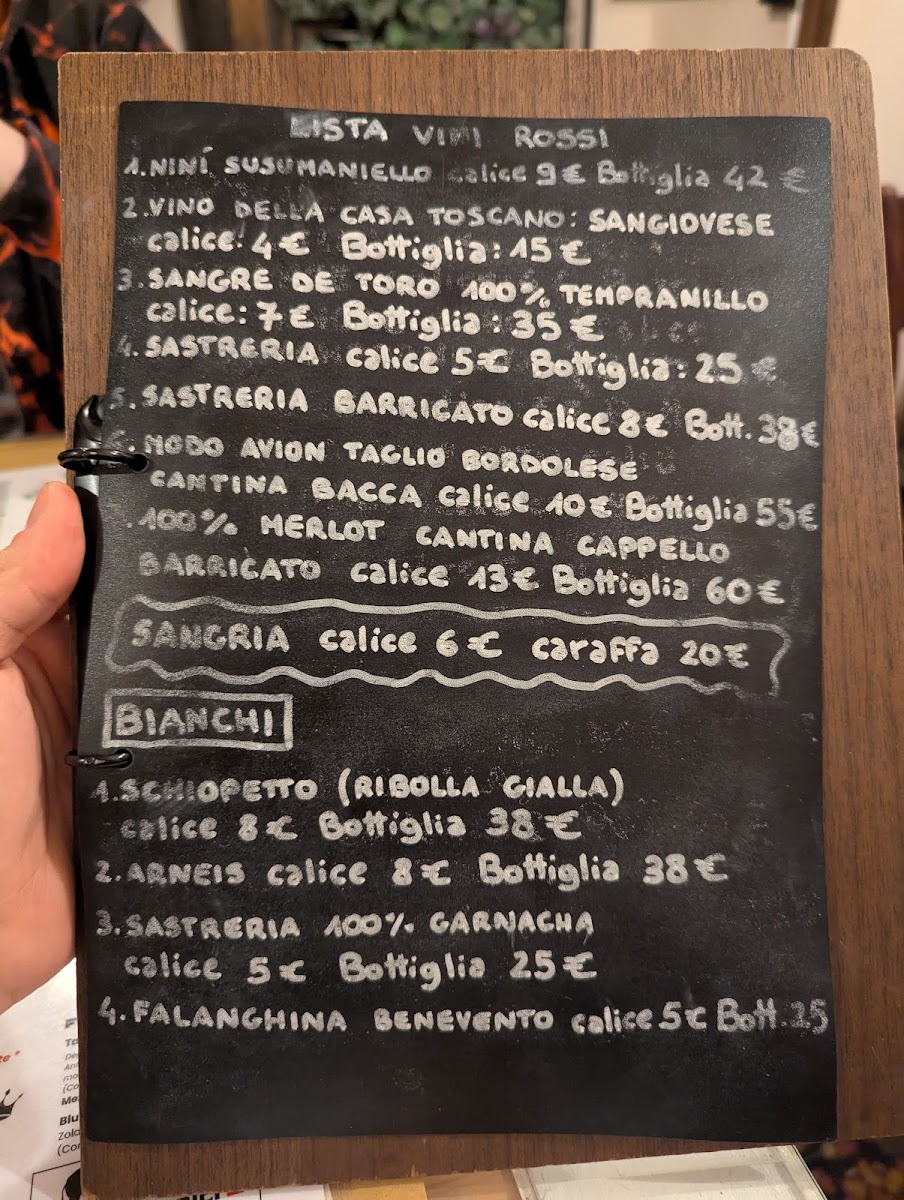 LISTA VINI ROSSI
1. NINÍ SUSUMANIELLO calice 9€ Bottiglia 42 €
2. VINO DELLA CASA TOSCANO: SANGIOVESE
calice: 4€ Bottiglia: 15 €
3. SANGRE DE TORO 100% TEMPRANILLO
calice: 7€ Bottiglia: 35 €
4. SASTRERIA calice 5€ Bottiglia: 25 €
5. SASTRERIA BARRICATO calice 8€ Bott. 38€
6. MODO AVION TAGLIO BORDOLESE
CANTINA BACCA calice 10€ Bottiglia 55€
. 100% MERLOT CANTINA CAPPELLO
BARRICATO calice 13€ Bottiglia 60€
SANGRIA calice 6€ caraffa 20€
BIANCHI
1. SCHIOPETTO (RIBOLLA GIALLA)
calice 8€ Bottiglia 38€
2. ARNEIS calice 8€ Bottiglia 38€
3. SASTRERIA 100% GARNACHA
calice 5€ Bottiglia 25€
4. FALANGHINA BENEVENTO calice 5€ Bott. 25